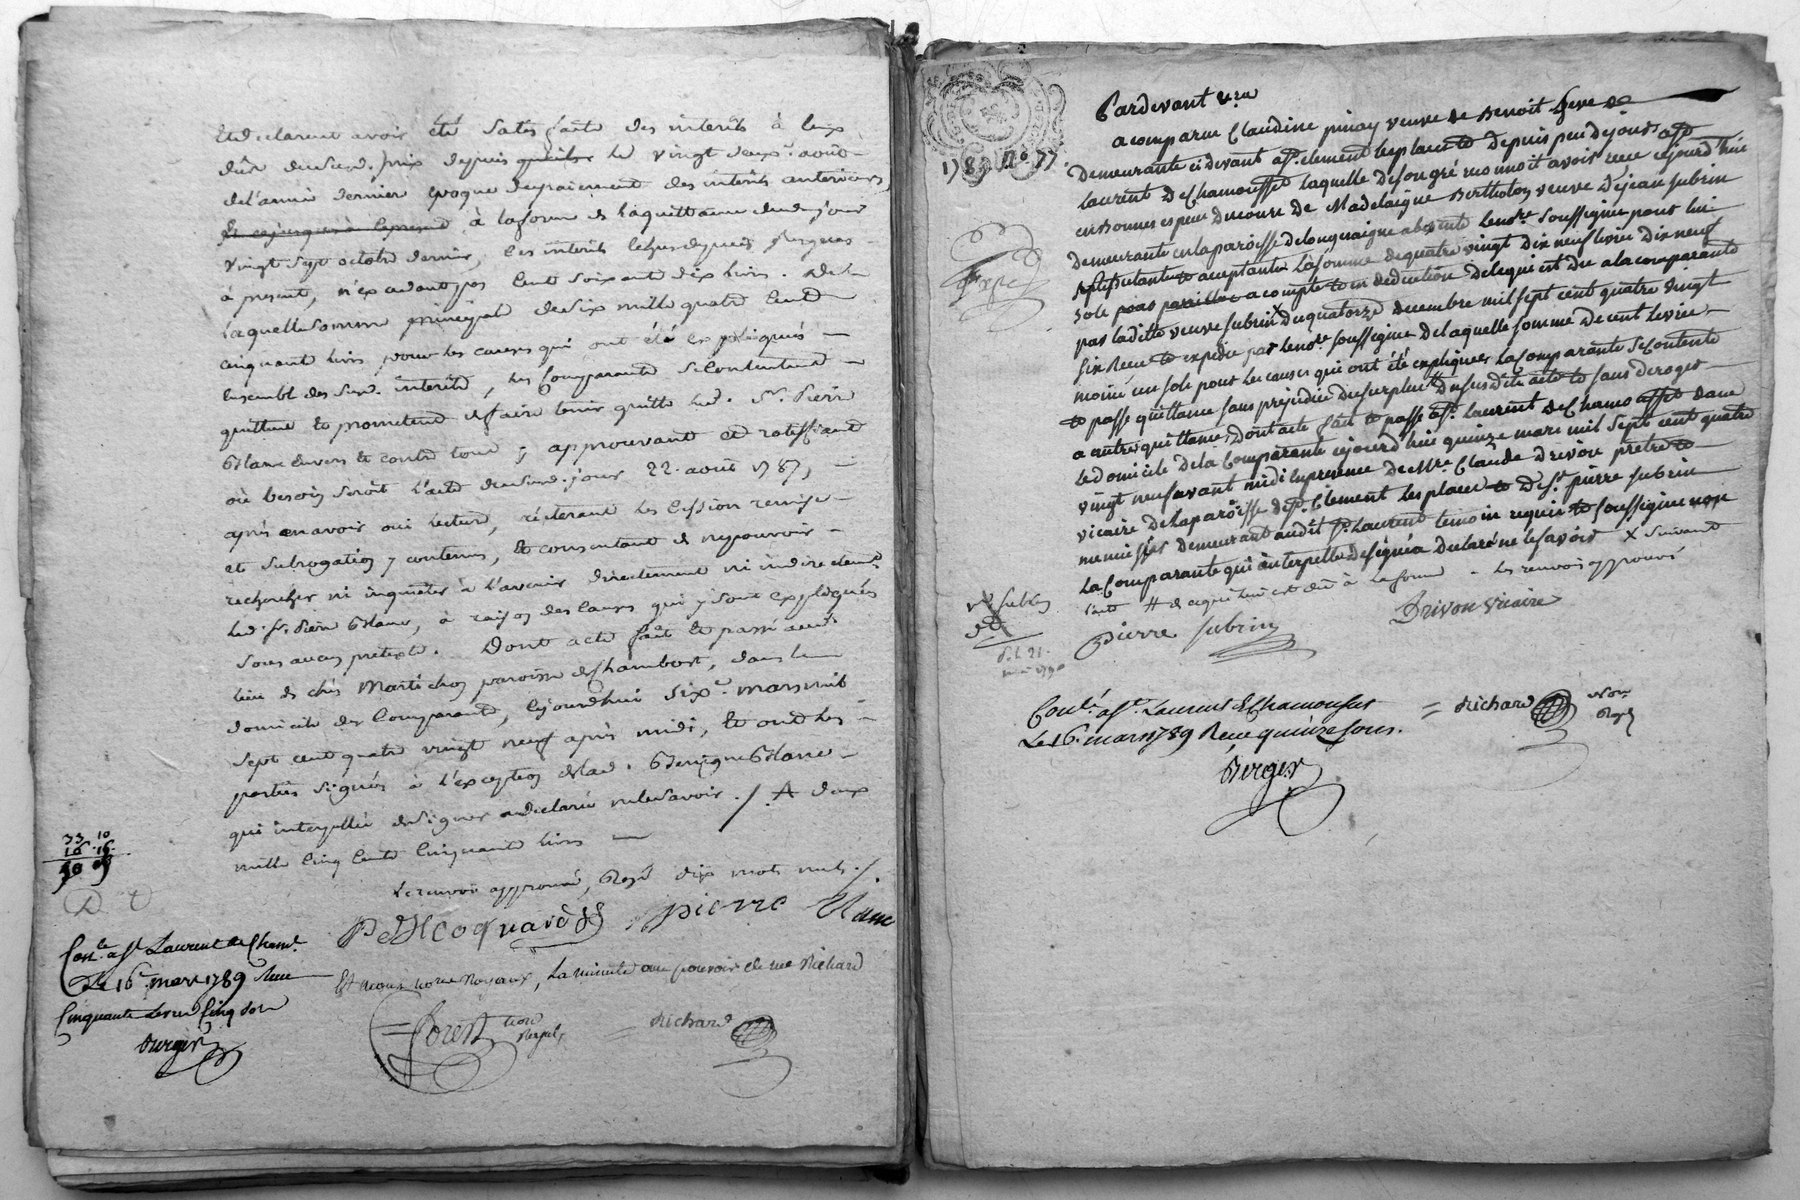 et declarent avoir été satisfaits des interêts à eux
dûs dudit. prix depuis le vingt deux.e août
de l'année derniere epoque du paiement des interêts anterieurs,
à la forme de la quittance dud. jour
vingt sept octobre dernier, les interêts echus depuis jusques
à present, n'excedant pas cent soixante dix livres. de
laquelle somme principal de six mille quatre cent
cinquante livres pour les causes qui ont été expliquées
ensemble des susd. interêts, les comparants se contentent
quittent et promettent de faire tenir quitte led. Sr. Pierre
Blanc envers et contre tous; approuvant et ratiffiant
où besoin seroit l'acte dudit. jour 22. août 1787,
après en avoir oui lecture, réiterant les cession remise
et subrogation y contenus, et consentant de n'y pouvoir
rechercher ni inquiéter à l'avenir directement ni indirectem.t
led. Sr. Pierre Blanc, à raison des causes qui y sont expliquées
sous aucun pretexte. Dont acte fait et passé aud.
lieu de chés Martichon paroisse de Chambost, dans le
domicile des comparants, cejourd'hui six.e mars mil
sept cent quatre vingt neuf après midi, et ont les
parties signés à l'exception de lad. Benigne Blanc
qui interpellée de signer a declaré ne le savoir ./. A deux
mille cinq cents cinquante livres
le renvoi approuvé, Rayé dix mots nuls ./.
pierre Blanc
Et nous no.re Royaux, la minute au pouvoir de me Richard
Forest no.re Royal,
= Richard
33 10
16 16
50 05
Con.lé à St Laurent de Cham.t
Le 16e mars 1789 Recu
Cinquante livres Cinq sols
Berger
1789 No 77.
Expé
Pardevant &.ra
a comparue Claudine pinay veuve de Benoit
demeurante cidevant à St. Clement les places et depuis peu de jours à St
Laurent de Chamousset laquelle de son gré reconnoit avoir recu cejourd'hui
en bonnes especes du cours de Madelaigne Bertholon veuve de jean subrin
demeurante en la paroisse de longessaigne absente le no.re soussigné pour lui
stipulant et acceptant la somme de quatre vingt dix neuf livres dix neuf
sols a compte et en deduction de ce qui est du a la comparante
par la ditte veuve subrin X du quatorze decembre mil sept cent quatre vingt
six recu et expedié par le no.re soussigné de laquelle somme de cent livres
moins un sols pour les causes qui ont été expliquées la comparante se contente
et passe quittance sans prejudice du surplus # du susdite acte et sans deroger
a autre quittances, dont acte fait et passé à St. Laurent de Chamousset dans
le domicile de la comparante cejourd'hui quinze mars mil sept cent quatre
vingt neuf avant midi en presence de Mre. Claude Drivon prêtre et
vicaire de la paroisse de St. Clement les places et de Sr. pierre subrin
menuisier demeurant audit St. Laurent temoin requis et soussigné non
la comparante qui interpellée de signer a declaré ne le savoir X suivant
l'acte # de ce qui lui est dû à la forme - les renvois approuvés
Drivon vicaire
Pierre subrin
ve subrin
Con.lé à St. Laurent de Chamousset
Le 16. mars 1789 Recu quinze sous.
Berger
= Richard no.re
Royal